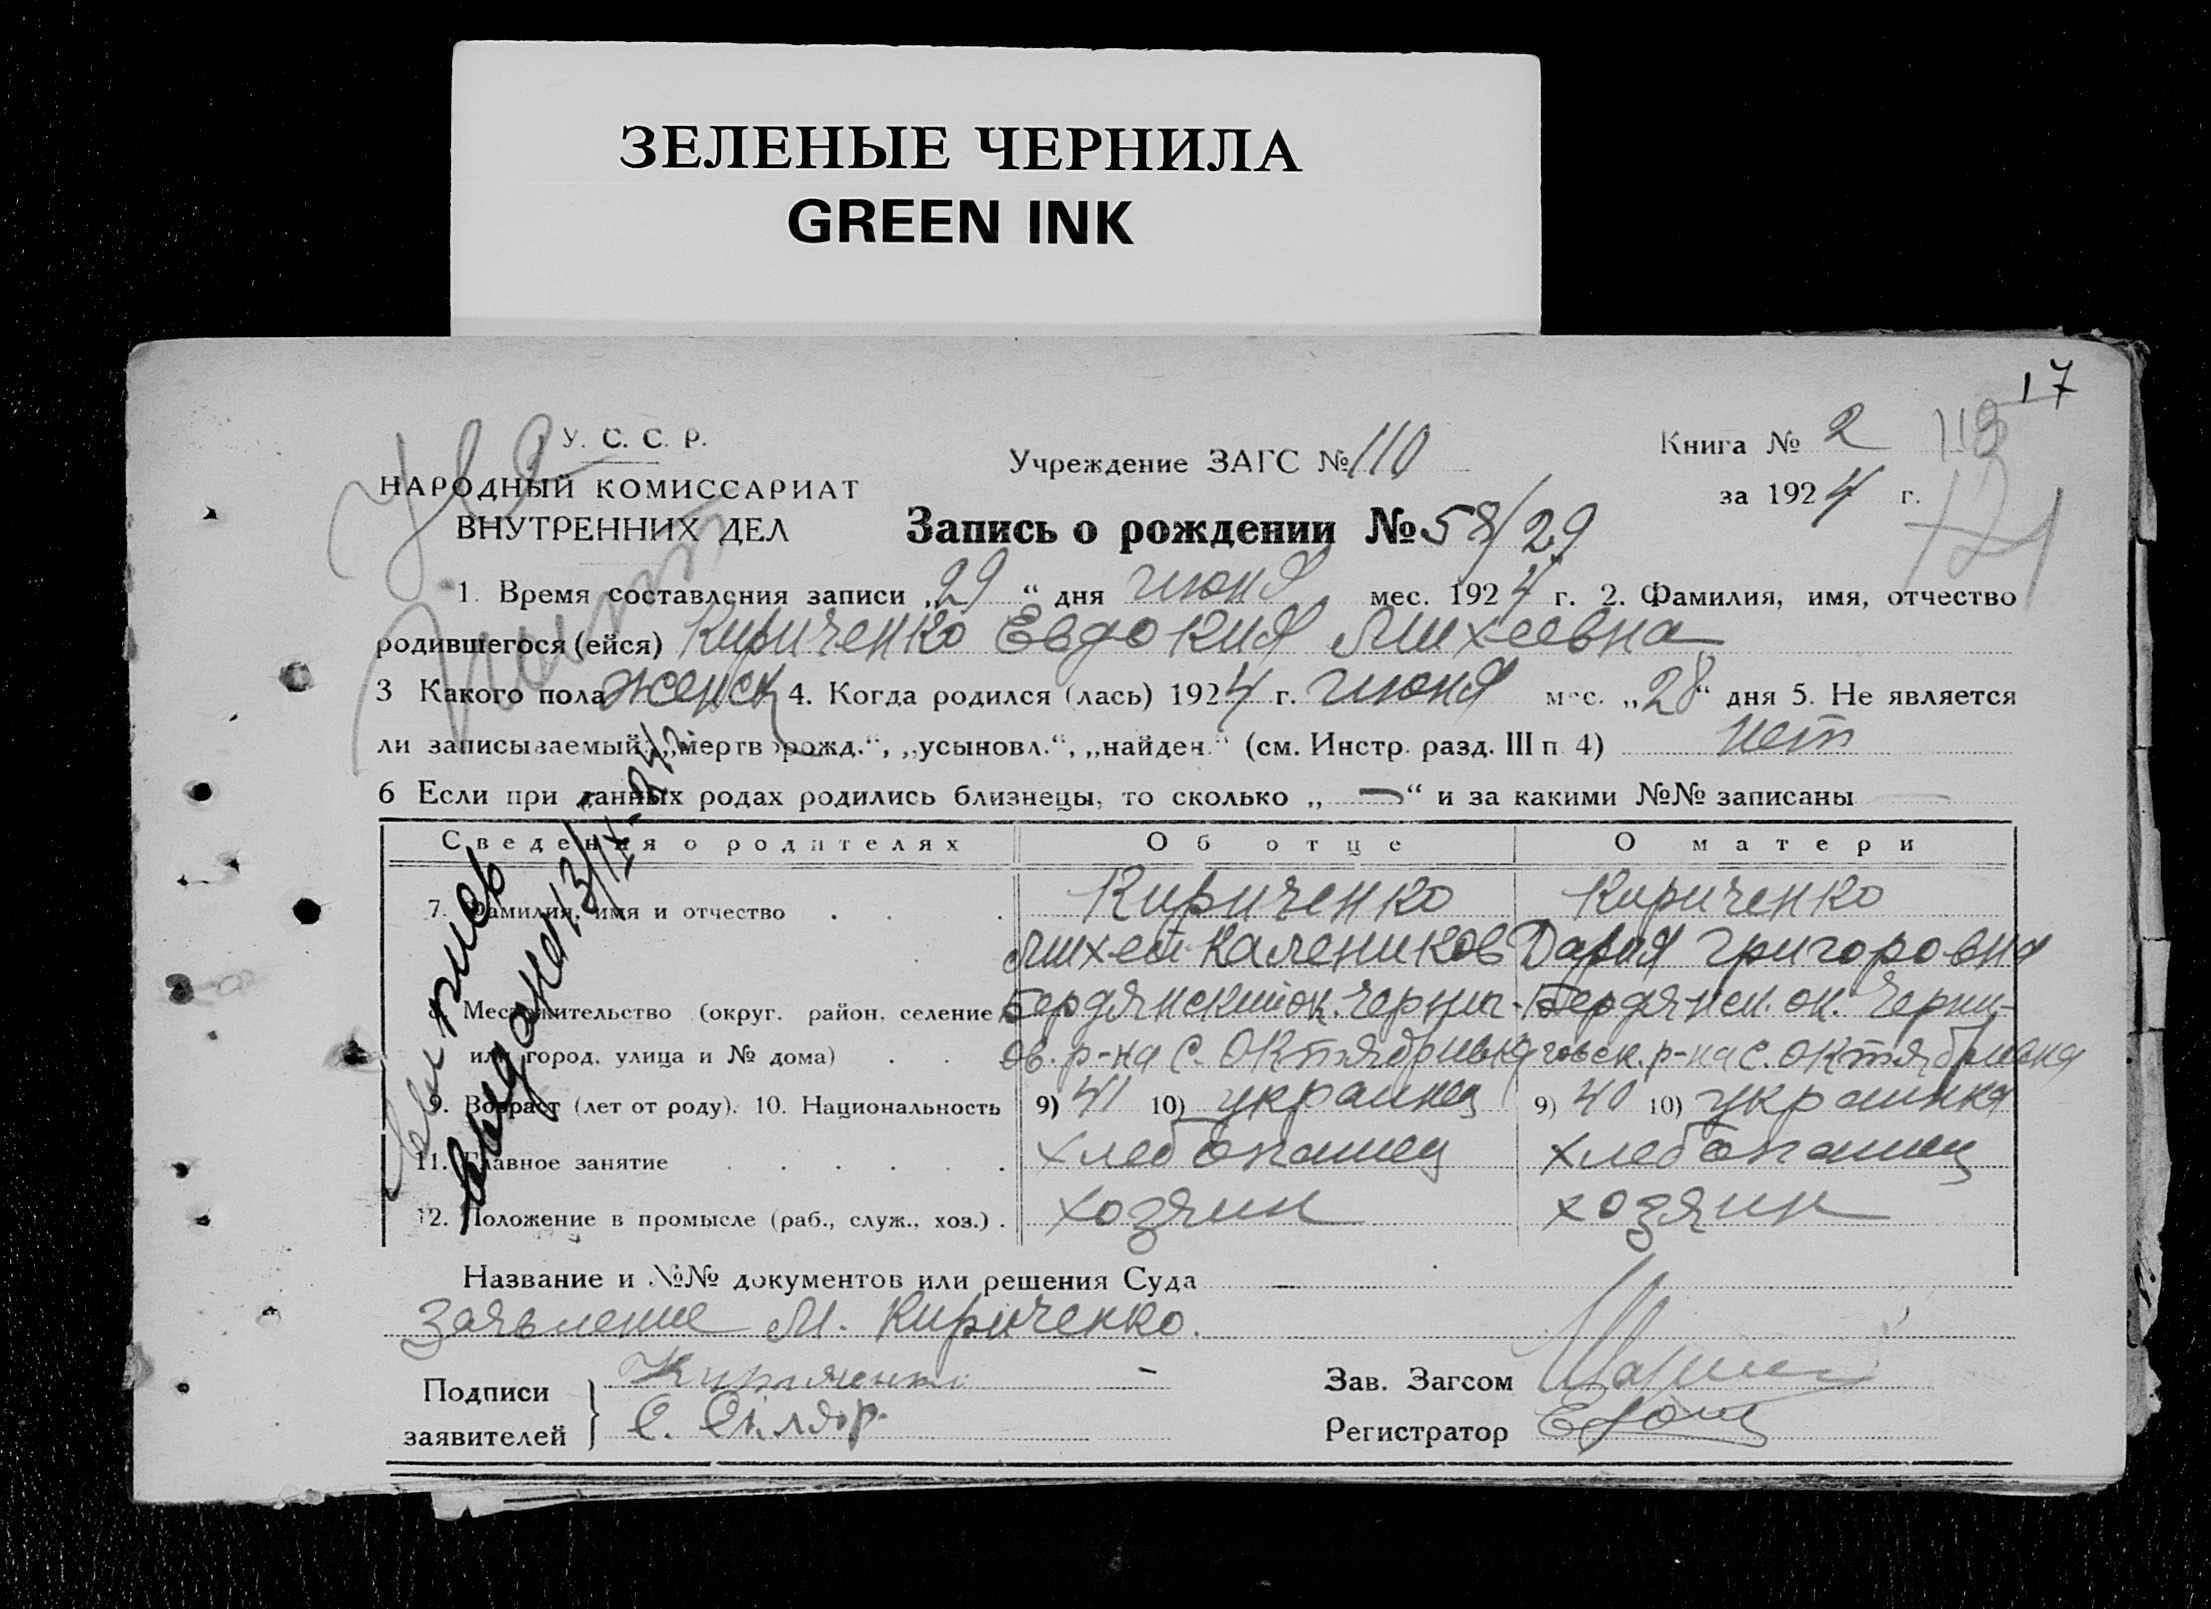 ЗЕЛЕНЫЕ ЧЕРНИЛА
GREEN INK
17
У. С. С. Р.
НАРОДНЫЙ КОМИССАРИАТ
ВНУТРЕННИХ ДЕЛ
Учреждение ЗАГС № 110
Книга № 2
за 1924 г.
Запись о рождении № 58/29
1. Время составления записи „29“ дня июня мес. 1924 г. 2. Фамилия, имя, отчество
родившегося (ейся) Кириченко Евдокия Михеевна
3 Какого пола женск 4. Когда родился (лась) 1924 г. июня мес. „28“ дня 5. Не является
ли записываемый: „мертворожд.“, „усыновл.“, „найден.“ (см. Инстр. разд. III п 4) нет
6 Если при данных родах родились близнецы, то сколько „—“ и за какими №№ записаны —
Сведения о родителях Об отце О матери
7. Фамилия, имя и отчество . . . Кириченко Кириченко
Михей Калеников Дария Григоровна
8. Местожительство (округ. район, селение Бердянский ок. Черниг- Бердянск. ок. Черни-
или город, улица и № дома) . . ов. р-на с. Октябривка говск. р-на с. Октябривка
9. Возраст (лет от роду). 10. Национальность 9) 41 10) украинец 9) 40 10) украинка
11. Главное занятие . . . . . . хлебопашец хлебопашец
12. Положение в промысле (раб., служ., хоз.) . хозяин хозяин
Название и №№ документов или решения Суда —
Заявление М. Кириченко.
Подписи
заявителей
Кириченко —
С. Скляр
Зав. Загсом
Регистратор
выпись
выдана 13/IX-